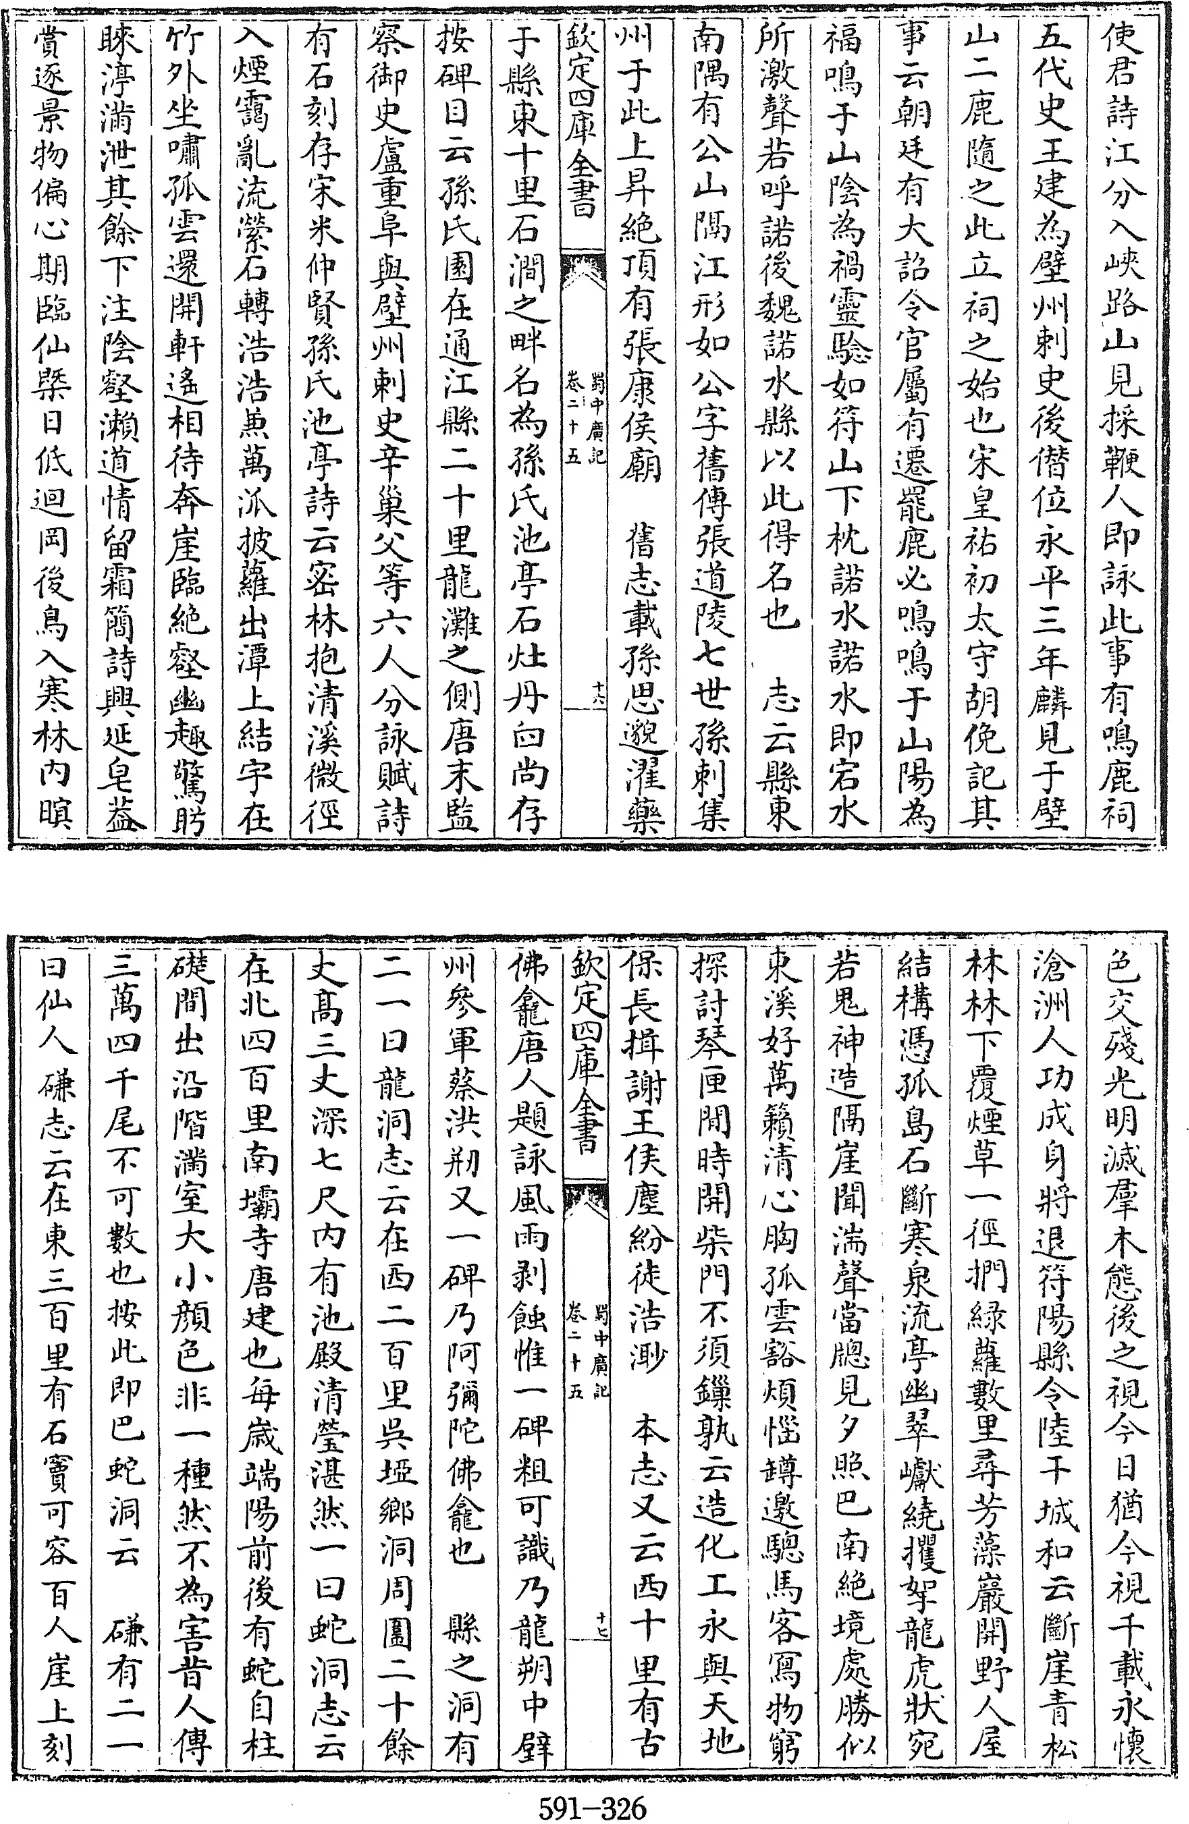 使君詩江分入峽路山見採鞭人即詠此事有鳴鹿祠
五代史王建為壁州刺史後僭位永平三年麟見于壁
山二鹿隨之此立祠之始也宋皇祐初太守胡俛記其
事云朝廷有大詔令官屬有遷罷鹿必鳴鳴于山陽為
福鳴于山陰為禍靈驗如符山下枕諾水諾水即宕水
所激聲若呼諾後魏諾水縣以此得名也　志云縣東
南隅有公山隔江形如公字舊傳張道陵七世孫刺集
州于此上昇絶頂有張康侯廟　舊志載孫思邈濯藥
欽定四庫全書
蜀中廣記
卷二十五
十六
于縣東十里石澗之畔名為孫氏池亭石灶丹臼尚存
按碑目云孫氏園在通江縣二十里龍灘之側唐末監
察御史盧重阜與壁州刺史辛巢父等六人分詠賦詩
有石刻存宋米仲賢孫氏池亭詩云密林抱清溪微徑
入煙靄亂流縈石轉浩浩兼萬派披蘿出潭上結宇在
竹外坐嘯孤雲還開軒遙相待奔崖臨絶壑幽趣驚眄
睞渟滿泄其餘下注陰壑瀨道情留霜簡詩興延皂蓋
賞逐景物偏心期臨仙槩日低迴岡後鳥入寒林内暝
色交殘光明滅羣木態後之視今日猶今視千載永懷
滄洲人功成身將退符陽縣令陸干城和云斷崖青松
林林下覆煙草一徑捫緑蘿數里尋芳藻巖開野人屋
結構憑孤島石斷寒泉流亭幽翠巘繞攫拏龍虎狀宛
若鬼神造隔崖聞湍聲當牕見夕照巴南絶境處勝似
東溪好萬籟清心胸孤雲豁煩惱罇邀驄馬客寫物窮
探討琴匣閒時開柴門不須鏁孰云造化工永與天地
保長揖謝王侯塵紛徒浩渺　本志又云西十里有古
欽定四庫全書
蜀中廣記
卷二十五
十七
佛龕唐人題詠風雨剥蝕惟一碑粗可識乃龍朔中壁
州參軍蔡洪刱又一碑乃阿彌陀佛龕也　縣之洞有
二一曰龍洞志云在西二百里吳埡鄉洞周圍二十餘
丈高三丈深七尺内有池殿清瑩湛然一曰蛇洞志云
在北四百里南壩寺唐建也每歲端陽前後有蛇自柱
礎間出沿階滿室大小顔色非一種然不為害昔人傳
三萬四千尾不可數也按此即巴蛇洞云　磏有二一
曰仙人磏志云在東三百里有石竇可容百人崖上刻
591-326